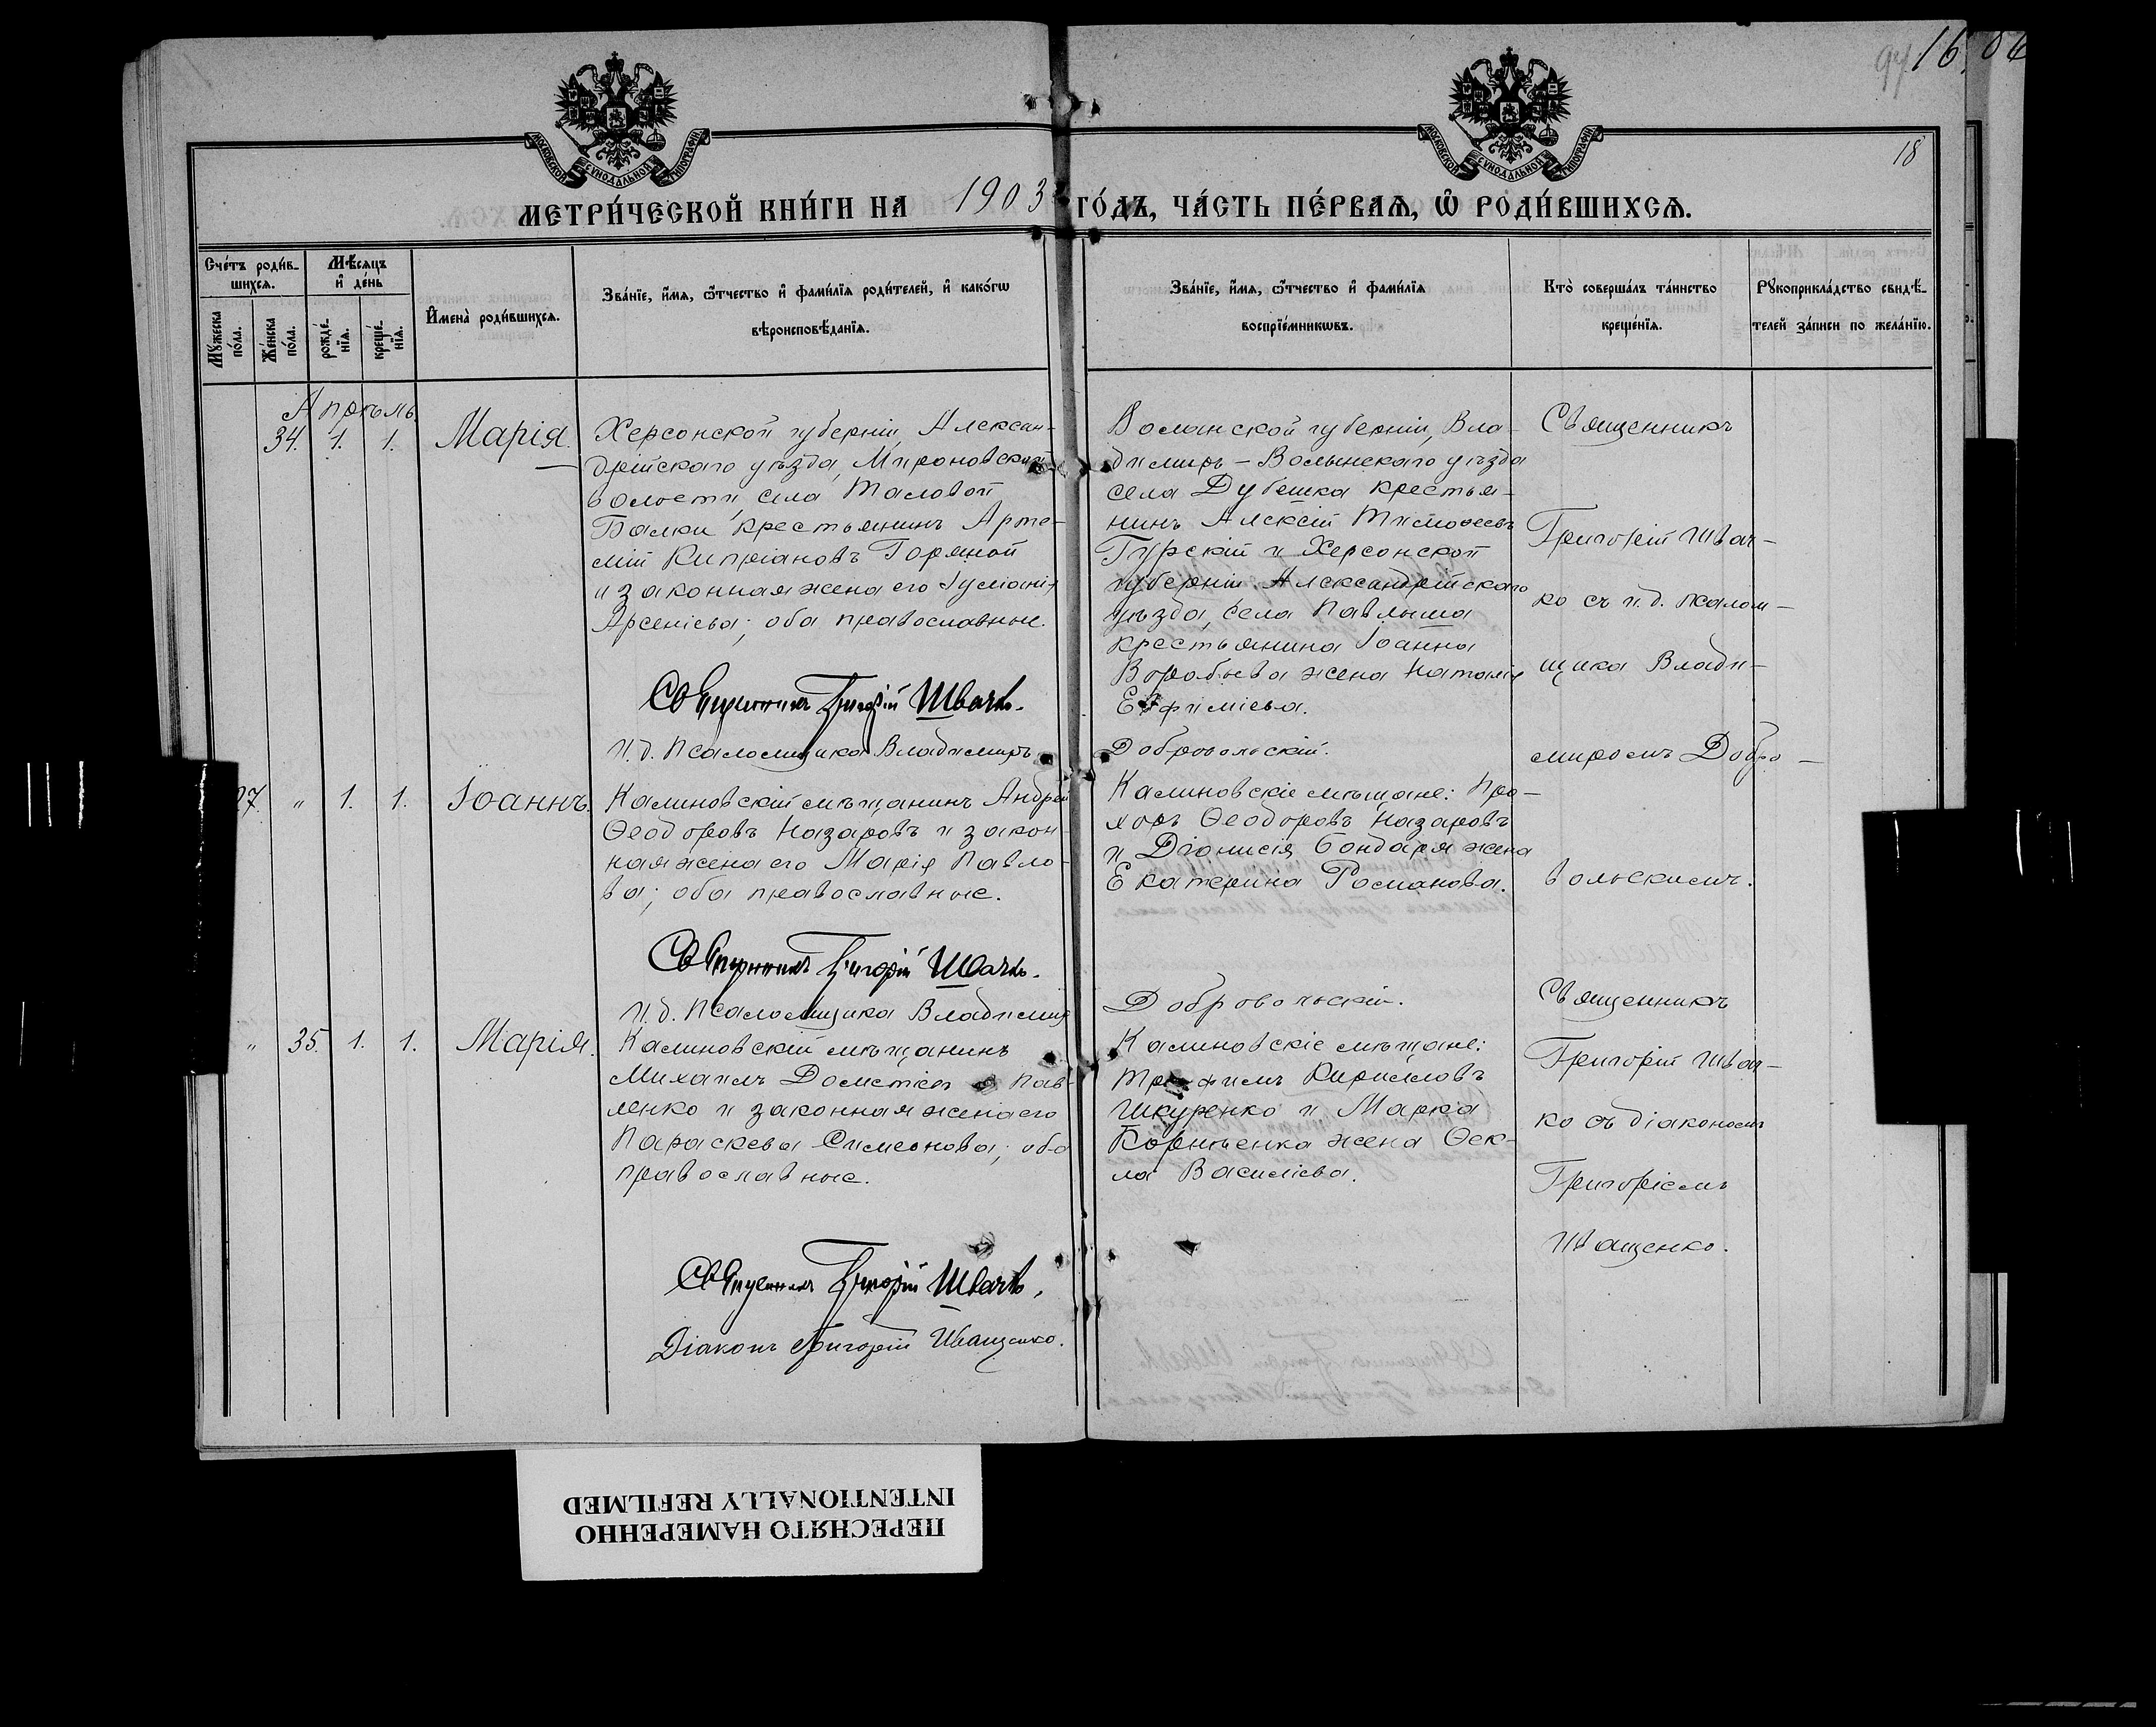 16
94
18
МОСКОВСКОЙ СУНОДАЛЬНОЙ ТИПОГРАФІИ
МОСКОВСКОЙ СУНОДАЛЬНОЙ ТИПОГРАФІИ
МЕТРИ́ЧЕСКОЙ КНИ́ГИ НА 1903 ГО́ДЪ, ЧА́СТЬ ПЕ́РВАѦ, Ѡ҆ РОДИ́ВШИХСѦ.
Сче́тъ роди́в-
шихсѧ.
Мꙋ́жеска
по́ла.
Же́нска
по́ла.
Мѣ́сяцъ
и҆ де́нь
рожде́-
нїѧ.
креще́-
нїѧ.
И҆мена̀ роди́вшихсѧ.
Зва́нїе, и҆́мѧ, ѻ҆́тчество и҆ фами́лїѧ роди́телей, и҆ како́гѡ
вѣроисповѣ́данїѧ.
Зва́нїе, и҆́мѧ, ѻ҆́тчество и҆ фами́лїѧ
воспрїе́мникѡвъ.
Кто̀ соверша́лъ та́инство
креще́нїѧ.
Рꙋкоприкла́дство свидѣ́-
телей за́писи по жела́нїю.
Апрѣль
34. 1. 1. Марія.
Херсонской губерніи, Алексан-
дрійскаго уѣзда, Мироновской
волости, села Таловой
Балки, крестьянинъ Арте-
мій Кипріановъ Горяной
и законная жена его Іуліанія
Арсеніева; оба православные.
Священникъ Григорій Швачко.
И. д. Псаломщика Владимиръ
Волынской губерніи, Вла-
димиръ-Волынскаго уѣзда
села крестья-
нинъ Алексій Тимоѳеевъ
Гурскій и Херсонской
губерніи Александрійскаго
уѣзда, села Павлыша
крестьянина Іоанна
Воробьева жена Наталія
Евфиміева.
Добровольскій.
Священникъ
Григорій Швач-
ко съ и. д. псалом-
щика Влади-
миромъ Добро-
вольскимъ.
27. „ 1. 1. Іоаннъ.
Калиновскій мѣщанинъ Андрей
Ѳеодоровъ Назаровъ и закон-
ная жена его Марія Павло-
ва; оба православные.
Священникъ Григорій Швачко.
И. д. Псаломщика Владимиръ
Калиновскіе мѣщане: Про-
хоръ Ѳеодоровъ Назаровъ
и Діонисія Бондаря жена
Екатерина Романова.
Добровольскій.
„ 35. 1. 1. Марія.
Калиновскій мѣщанинъ
Михаилъ Пав-
ленко и законная жена его
Параскева Симеонова; оба
православные.
Священникъ Григорій Швачко.
Діаконъ Григорій Иващенко.
Калиновскіе мѣщане:
Трофимъ Кирилловъ
Шкуренко и Марка
Корнѣенка жена Ѳек-
ла Василіева.
Священникъ
Григорій Швач-
ко съ діакономъ
Григоріемъ
Иващенко.
ПЕРЕСНЯТО НАМЕРЕННО
INTENTIONALLY REFILMED